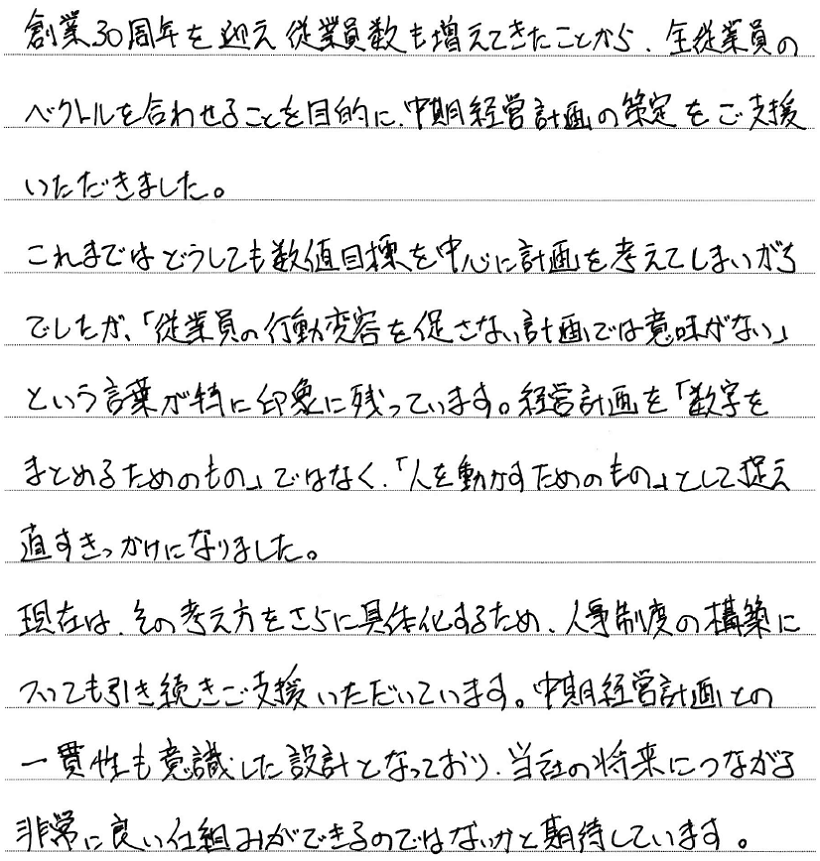 創業30周年を迎え従業員数も増えてきたことから、全従業員の
ベクトルを合わせることを目的に、中期経営計画の策定をご支援
いただきました。
これまではどうしても数値目標を中心に計画を考えてしまいがち
でしたが、「従業員の行動変容を促さない計画では意味がない」
という言葉が特に印象に残っています。経営計画を「数字を
まとめるためのもの」ではなく、「人を動かすためのもの」として捉え
直すきっかけになりました。
現在は、その考え方をさらに具体化するため、人事制度の構築に
ついても引き続きご支援いただいています。中期経営計画との
一貫性も意識した設計となっており、当社の将来につながる
非常に良い仕組みができるのではないかと期待しています。